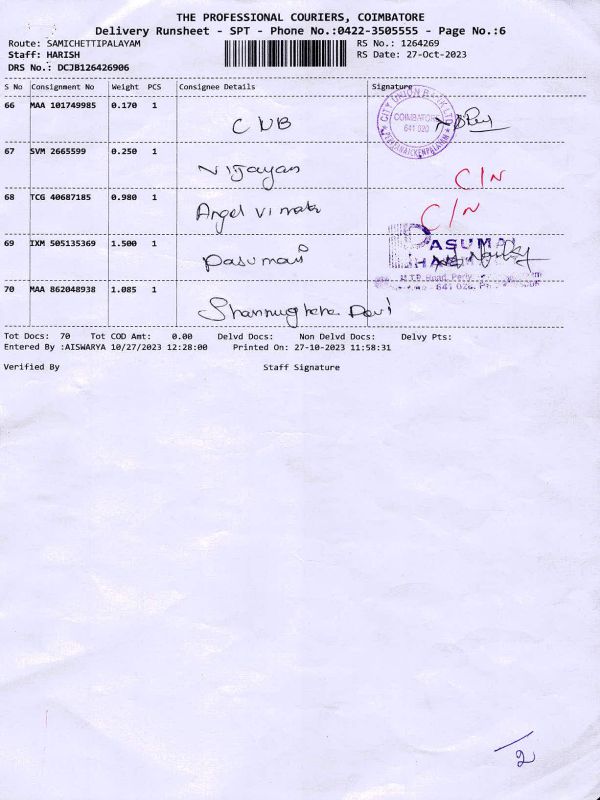 THE PROFESSIONAL COURIERS, COIMBATORE
Delivery Runsheet - SPT - Phone No.:0422-3505555 - Page No.:6
Route: SAMICHETTIPALAYAM RS No.: 1264269
Staff: HARISH RS Date: 27-Oct-2023
DRS No.: DCJB126426906
S No Consignment No Weight PCS Consignee Details Signature
66 MAA 101749985 0.170 1 CUB
CITY UNION BANK LTD
COIMBATORE
641 020
PERIANAICKENPALAYAM
67 SVM 2665599 0.250 1 Vijayan C/N
68 TCG 40687185 0.980 1 Angel C/N
69 IXM 505135369 1.500 1 Pasumai
PASUMAI
M.T.P. Road,
641 020.
70 MAA 862048938 1.085 1 Devi
Tot Docs: 70 Tot COD Amt: 0.00 Delvd Docs: Non Delvd Docs: Delvy Pts:
Entered By :AISWARYA 10/27/2023 12:28:00 Printed On: 27-10-2023 11:58:31
Verified By Staff Signature
2